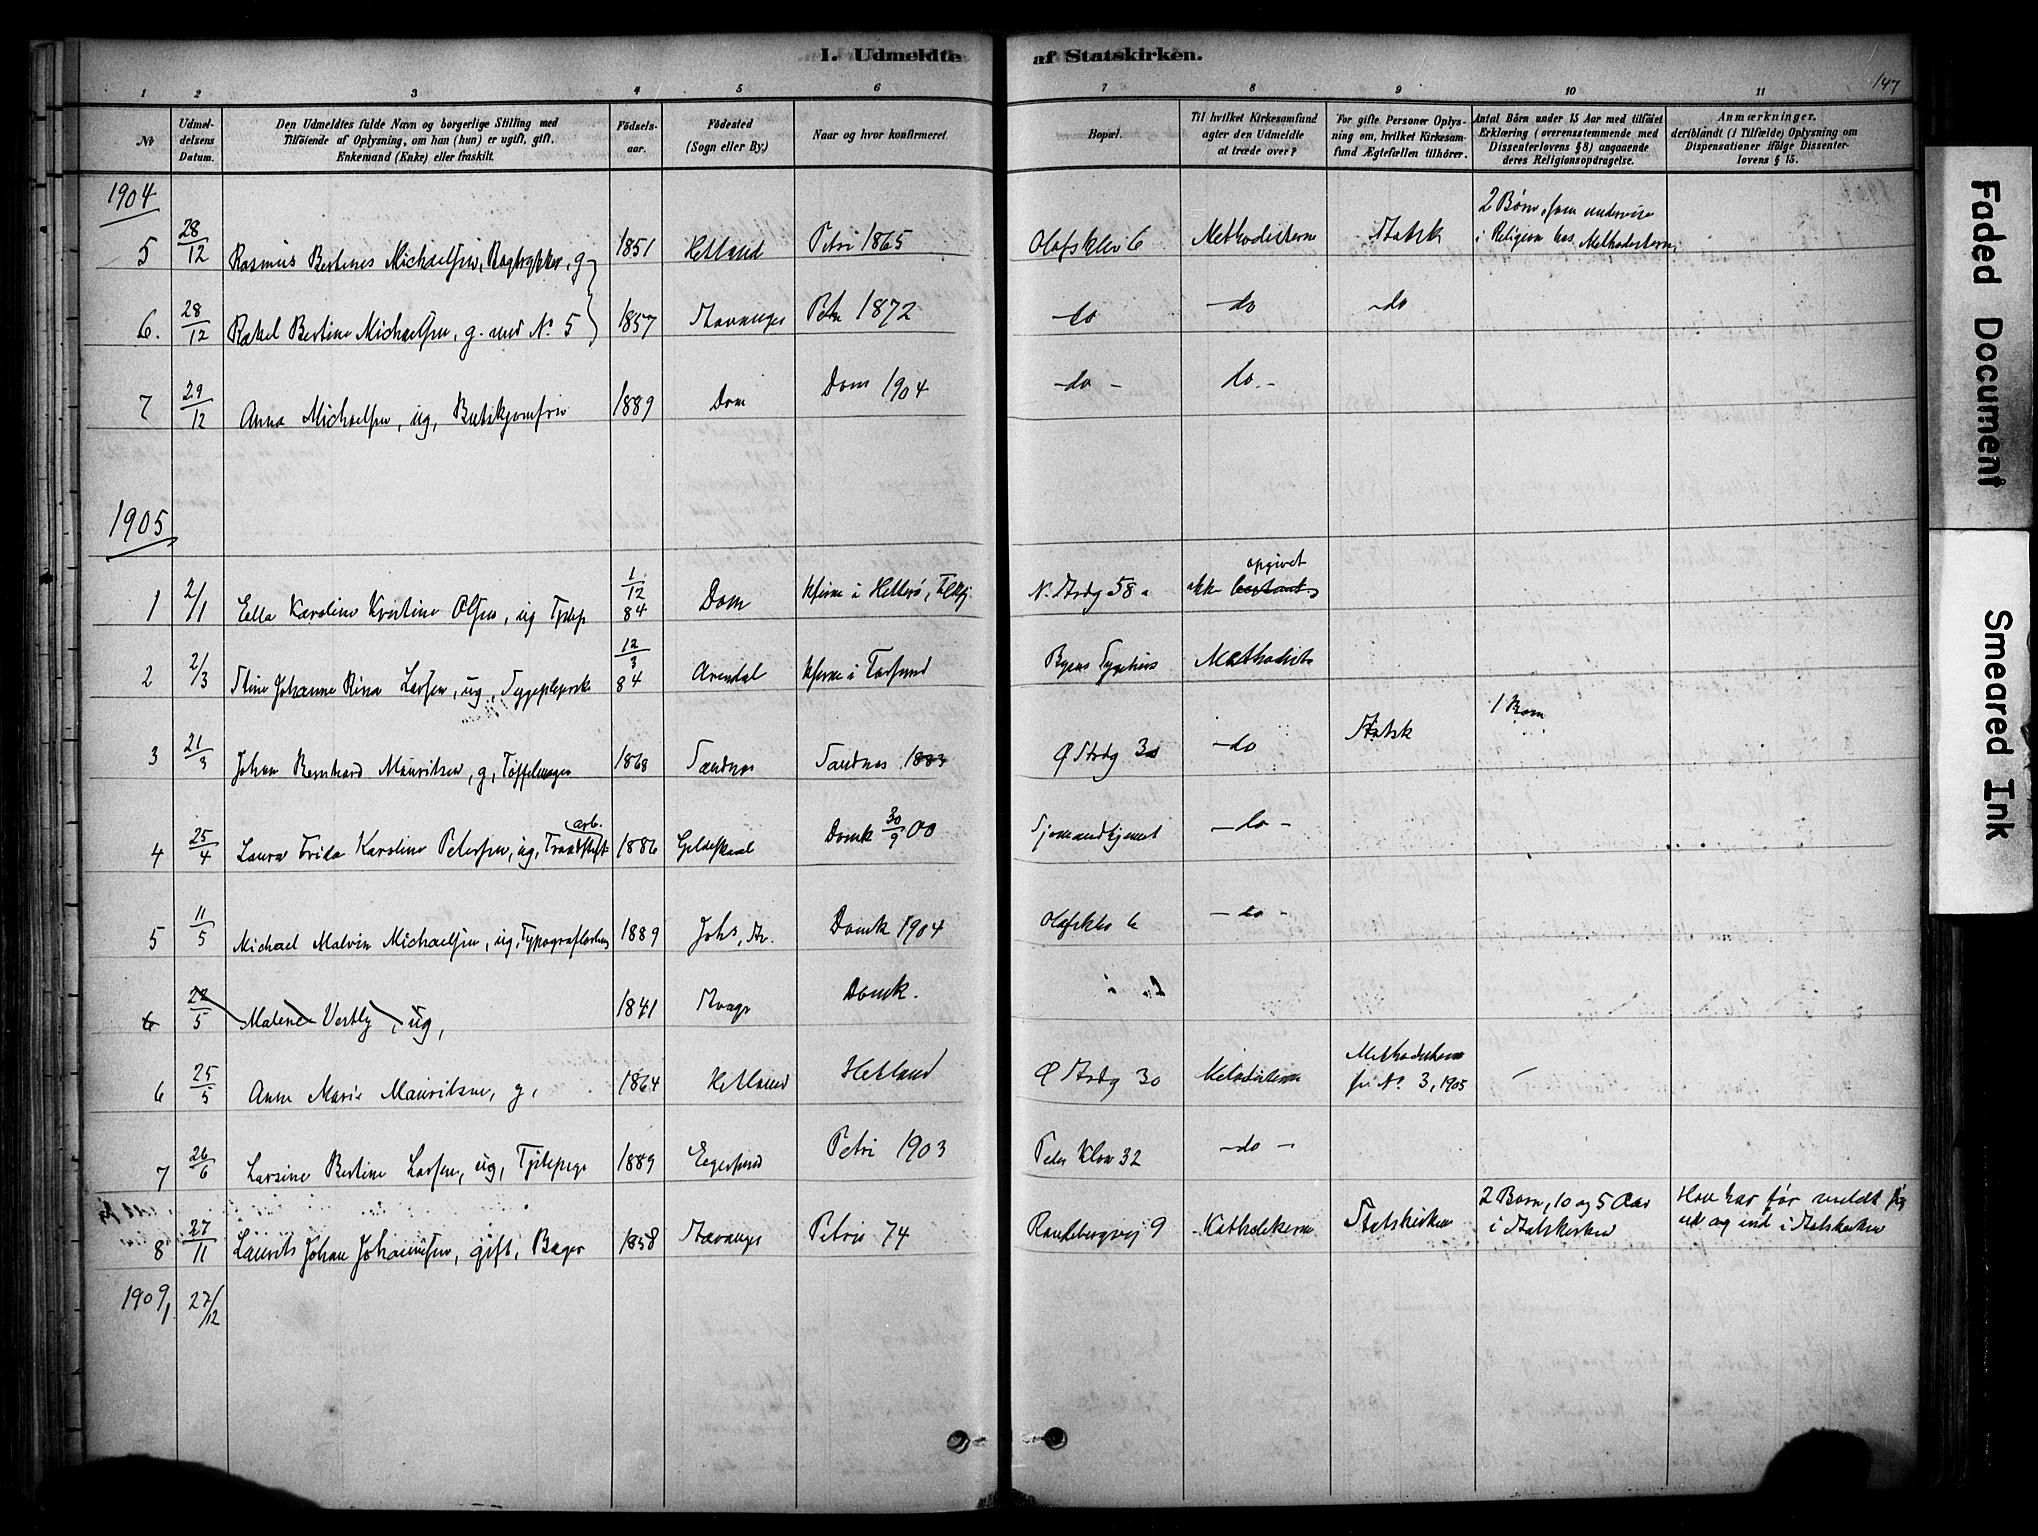 I. Udmeldte af Statskirken.
147
1 2 3 4 5 6 7 8 9 10 11
No
Udmeldelsens Datum.
Den Udmeldtes fulde Navn og borgerlige Stilling med
Tilföiende af Oplysning, om han (hun) er ugift, gift.
Enkemand (Enke) eller fraskilt.
Födselsaar.
Födested
(Sogn eller By.)
Naar og hvor konfirmeret.
Bopæl.
Til hvilket Kirkesamfund
agter den Udmeldte
at træde over?
For gifte Personer Oplysning om, hvilket Kirkesamfund Ægtefællen tilhörer.
Antal Börn under 15 Aar med tilföiet
Erklæring (overensstemmende med
Dissenterlovens § 8) angaaende
deres Religionsopdragelse.
Anmærkninger,
deriblandt (i Tilfælde) Oplysning om
Dispensationer ifölge Dissenterlovens § 15.
1904
5 28/12 Rasmus Bertines Michaelsen, Bogtrykker, g 1851 Hetland Petri 1865 Olafsklev 6 Methodisterne Statsk 2 Børn, som undervise
i Religion hos Methodisterne
6. 28/12 Rakel Bertine Michaelsen, g. med No 5 1857 Stavanger Petri 1872 - do - do - do
7 29/12 Anna Michaelsen, ug, Butikjomfru 1889 Dom Dom 1904 - do - do -
1905
1 2/1 Ella Karoline Kristine Olsen, ug 1/12 84 Dom i Hetterø, N. Strdg 58 a ikke opgivet
2 2/3 Stine Johanne Rina Larsen, ug, Sygepleierske 12/3 84 Arendal i Farsund Byens Sygehus Methodist
3 21/3 Johan Bernhard Mauritsen, g, Tøffelmager 1868 Sandnes Sandnes 1883 Ø Strdg 30 - do Statsk 1 Barn
4 25/4 Laura Frida Karoline Petersen, ug, arb. 1886 Gildeskaal Domk 30/9 00 Sjømandshjemmet - do -
5 11/5 Michael Malvin Michaelsen, ug, Typograflærling 1889 Johs, St. Domk 1904 Olafsklev 6 - do -
6 22/5 Malene Vestly, ug, 1841 Stvagr Domk.
6 25/5 Anne Marie Mauritsen, g, 1864 Hetland Hetland Ø Strdg 30 Metodisterne Methodisterne
No 3, 1905 -
7 26/6 Larsine Bertine Larsen, ug, Tjstepige 1889 Egersund Petri 1903 Peder Klow 32 - do -
8 27/11 Laurits Johan Johannesen, gift, Bager 1858 Stavanger Petri 74 Randebergvej 9 Katholikerne Statskirken 2 Barn, 10 og 5 Aar
i Statskirken Han har før meldt sig
ud og ind i Statskirken
1909, 27/12
Faded Document
Smeared Ink